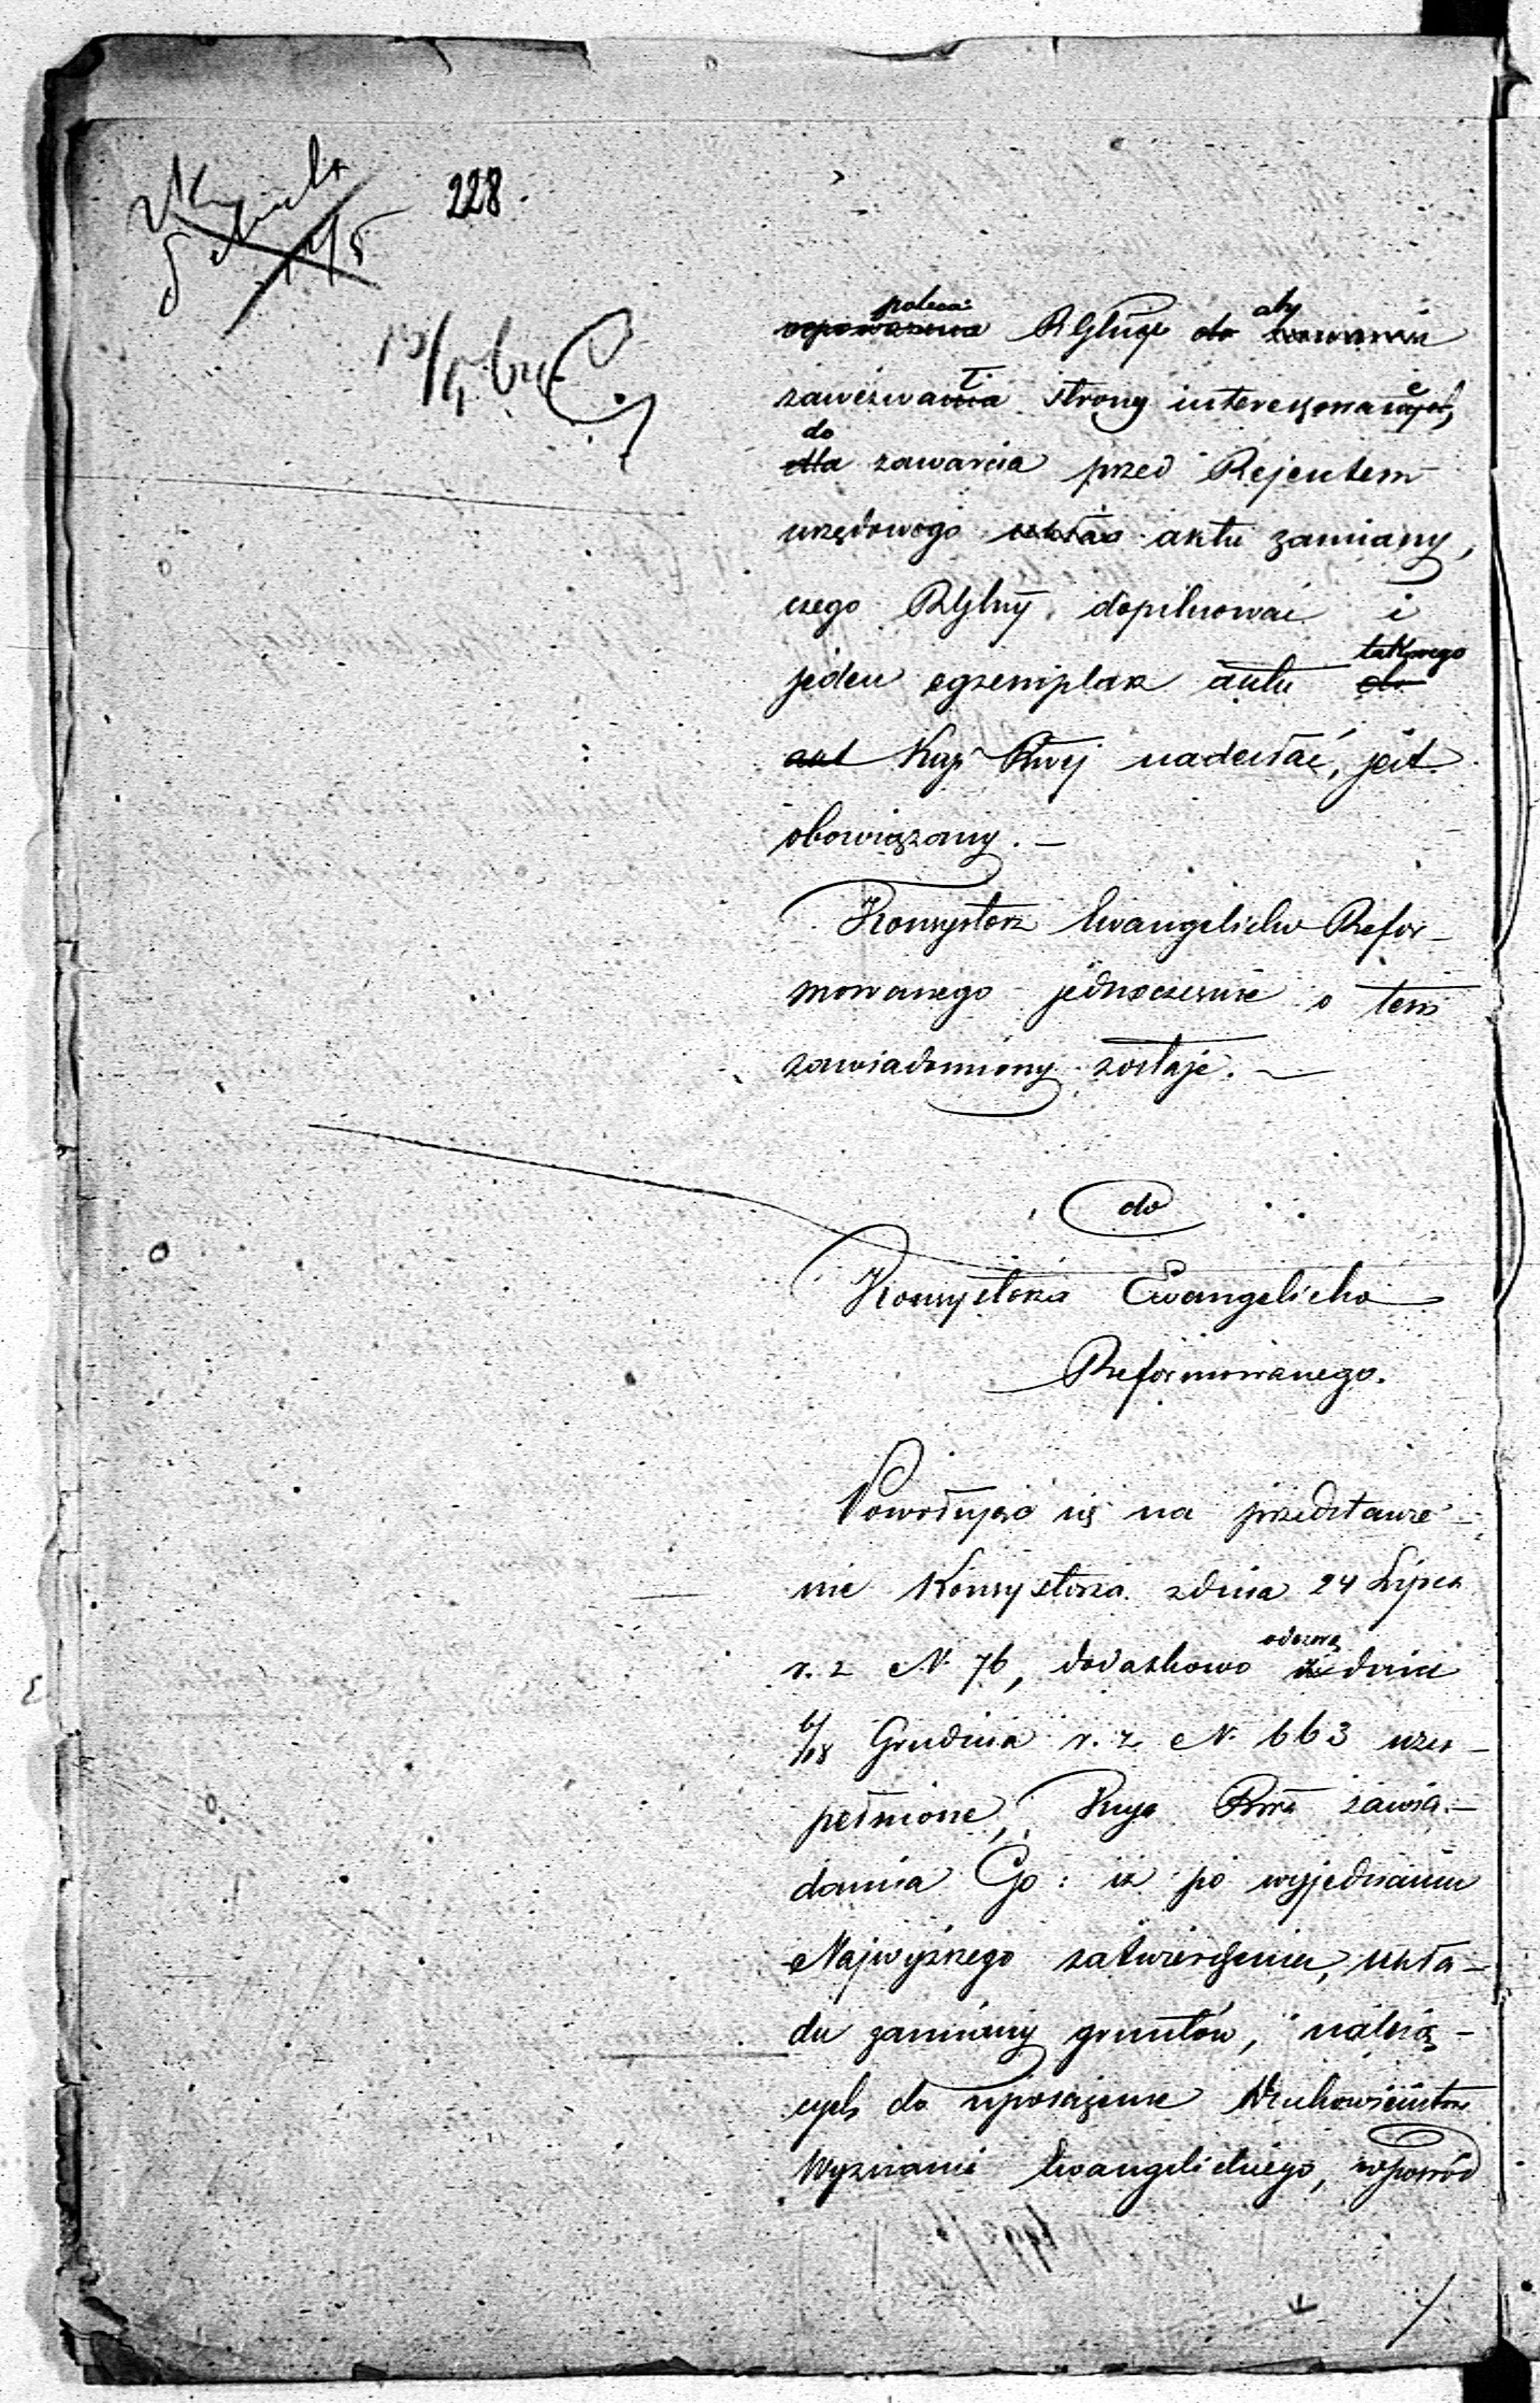 228.
poleca aby
upoważnia RGłny do
zawezwania strony interesowane,
do
dla zawarcia przed Rejentem
urzędowego układu aktu zamiany,
czego RGłny dopilnować i
jeden egzemplarz aktu takowego do
akt Kom Rząej nadesłać, jest
obowiązany. —
Konsystorz Ewangelicko Refor-
mowanego jednocześnie o tem
zawiadomiony zostaje. —
do
Konsystorza Ewangelicko
Reformowanego.
Powołując się na przedstawie-
nie Konsystorza z dnia 24 Lipca
r. z N. 76, dodatkowo odezwą z dnia
6/18 Grudnia r. z N. 663 uzu-
pełnione, Komya Rząwa zawia-
damia Go: iż po wyjednaniu
Najwyższego zatwierdzenia, ukła-
du zamiany gruntów, należą-
cych do uposażenia Duchowieństwa
Wyznania Ewangelickiego, wpośród